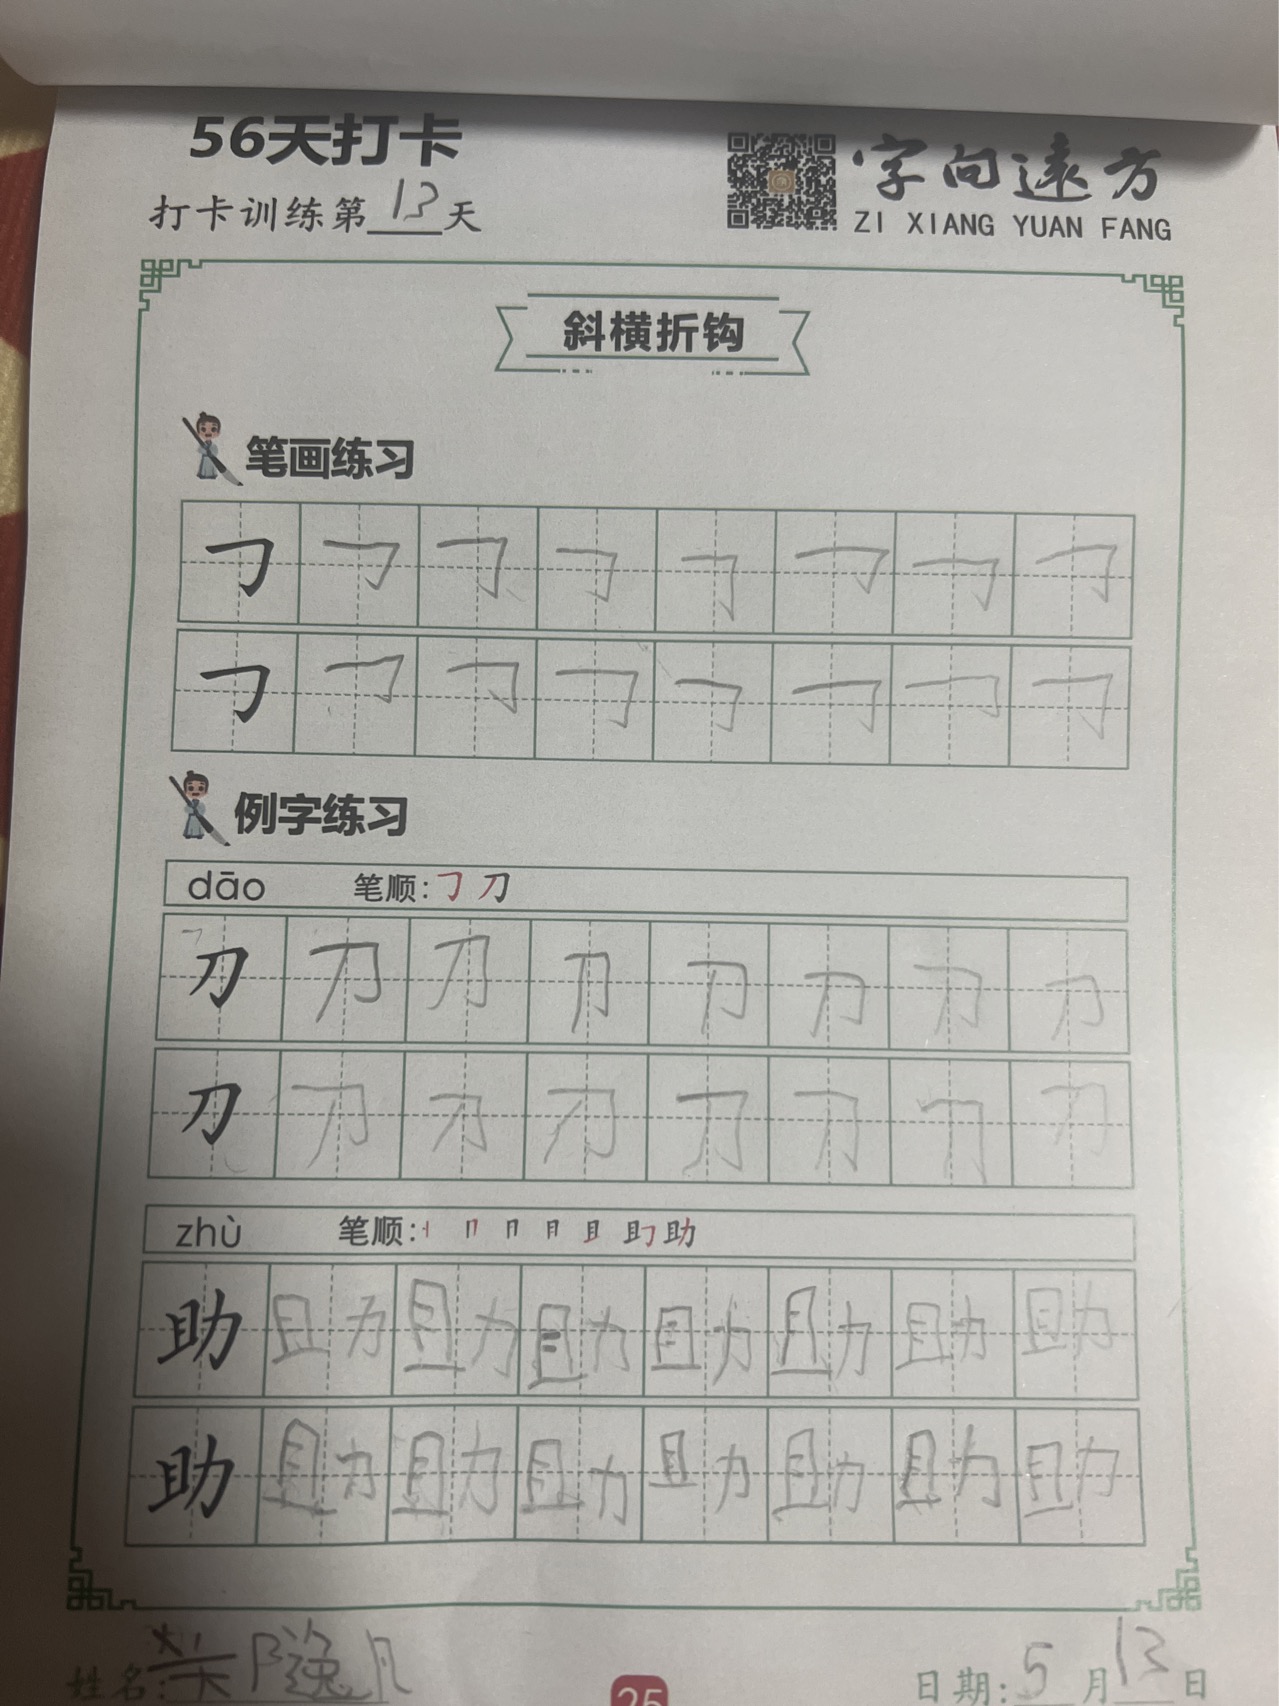 56天打卡
字向遠方
打卡训练第13天
ZI XIANG YUAN FANG
斜横折钩
笔画练习
㇆ ㇆ ㇆ ㇆ ㇆ ㇆ ㇆ ㇆
㇆ ㇆ ㇆ ㇆ ㇆ ㇆ ㇆ ㇆
例字练习
dāo 笔顺:㇆ 刀
刀 刀 刀 刀 刀 刀 刀 刀
刀 刀 刀 刀 刀 刀 刀 刀
zhù 笔顺: 助
助 助 助 助 助 助 助 助
助 助 助 助 助 助 助 助
姓名:
25
日期:5月13日